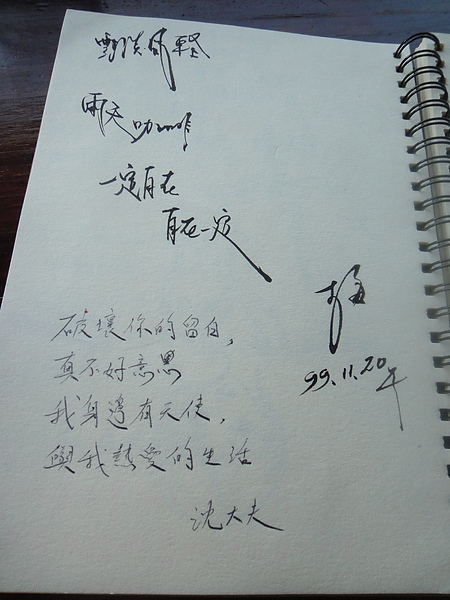 雲淡風輕
雨天咖啡
一定自在
自在一定
梅
99.11.20午
破壞你的留白,
真不好意思
我身邊有天使,
與我熱愛的生活
沈大夫